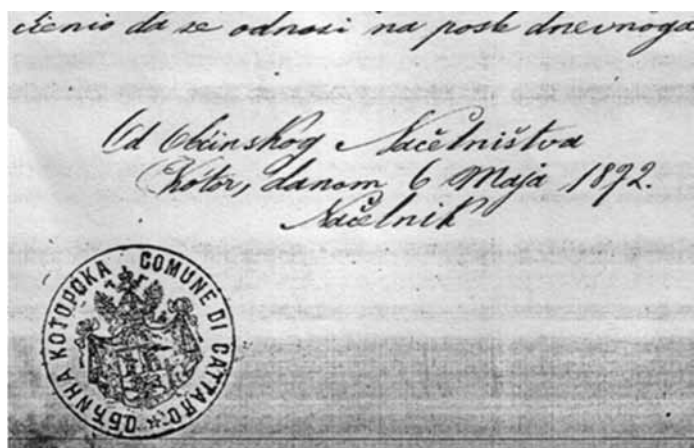 cienio da se odnosi na posle dnevnoga
Od Obćinskog Načelništva
Kotor, danom 6 Maja 1892.
Načelnik
ОБЋИНА КОТОРСКА COMUNE DI CATTARO